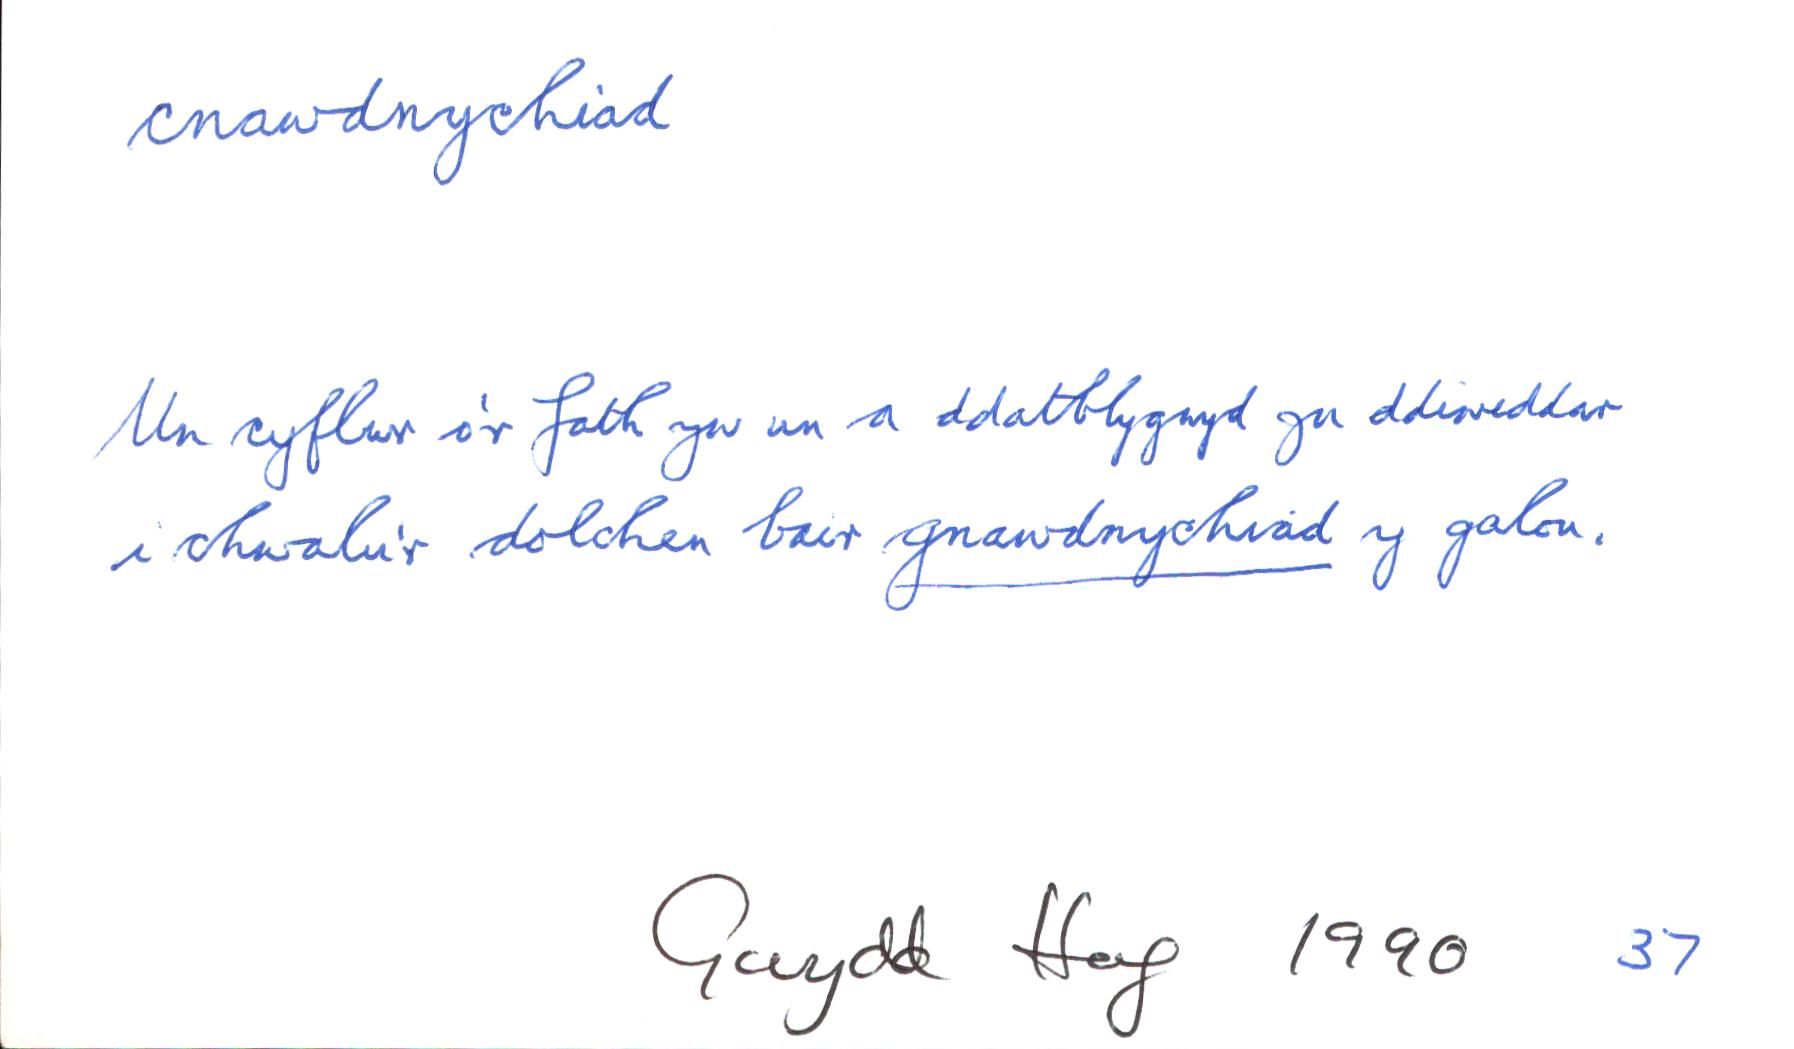 cnawdnychiad
Un cyflur o'r fath yw un a ddatblygwyd yn ddiweddar
i chwalu'r dolchen bair gnawdnychiad y galon.
Gwydd Hag 1990 37